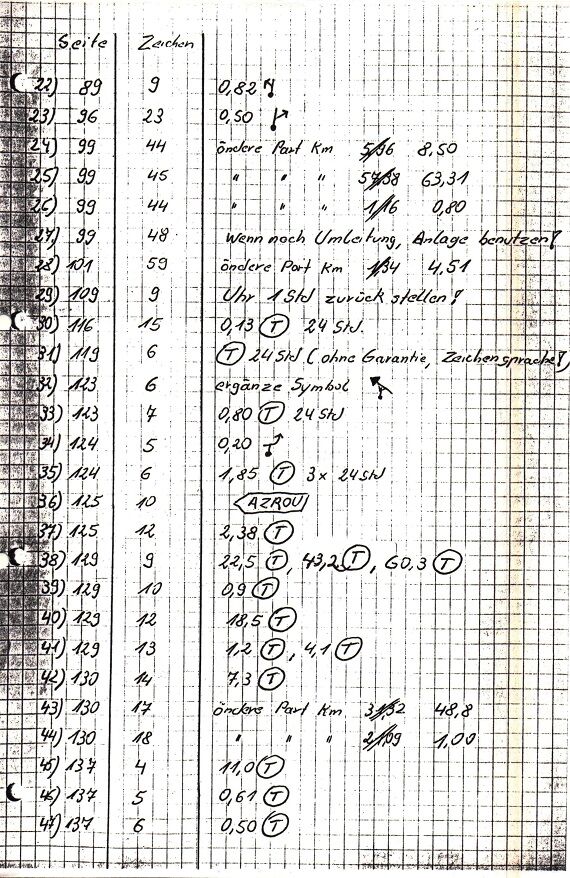 Seite Zeichen
22) 89 9 0,82
23) 96 23 0,50
24) 99 44 öndere Part Km 5/96 8,50
25) 99 45 " " " 57/98 63,31
26) 99 44 " " " 1/16 0,80
27) 99 48 Wenn noch Umleitung, Anlage benutzen!
28) 101 59 öndere Part Km 1/34 4,51
29) 109 9 Uhr 1 Std zurück stellen!
30) 116 15 0,13 T 24 Std.
31) 119 6 T 24 Std (ohne Garantie, Zeichensprache!)
32) 123 6 ergänze Symbol
33) 123 7 0,80 T 24 Std
34) 124 5 0,20
35) 124 6 1,85 T 3x 24 Std
36) 125 10 AZROU
37) 125 12 2,38 T
38) 129 9 22,5 T, 43,2 T, 60,3 T
39) 129 10 0,9 T
40) 129 12 18,5 T
41) 129 13 1,2 T, 4,1 T
42) 130 14 7,3 T
43) 130 17 öndere Part Km 48,8
44) 130 18 " " " 2/09 1,00
45) 137 4 11,0 T
46) 137 5 0,61 T
47) 137 6 0,50 T